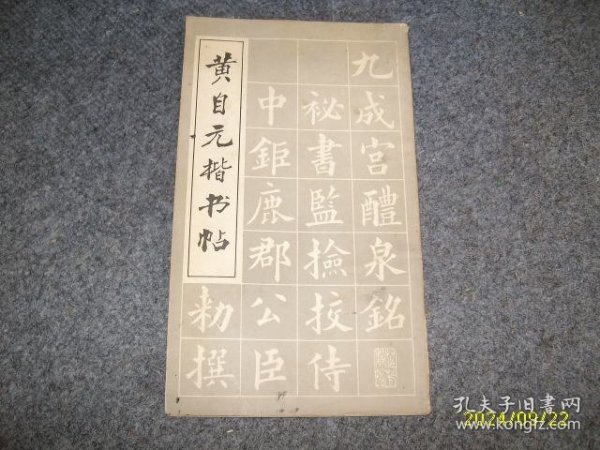 黄自元楷书帖
九成宫醴泉銘
祕書監撿挍侍
中鉅鹿郡公臣
勑撰
孔夫子旧书网
www.kongfz.com
2024/09/22